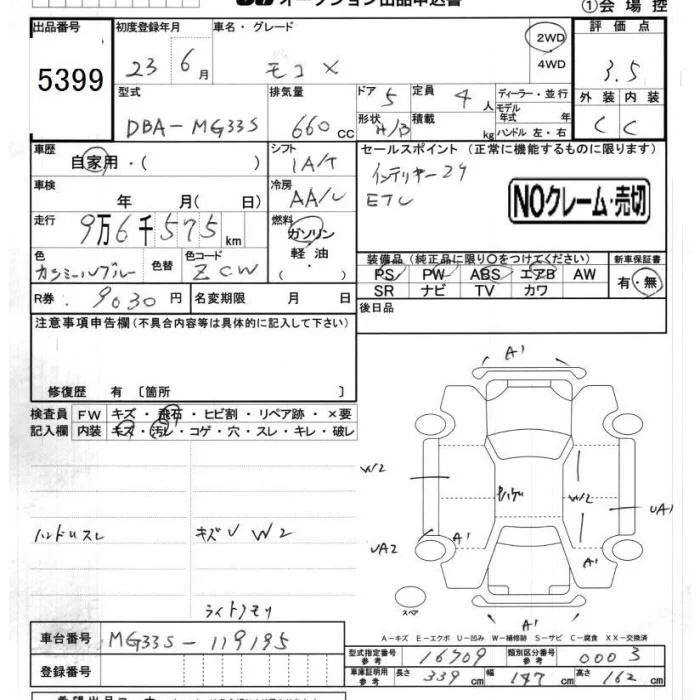 オークション出品申込書
①会場控
出品番号 初度登録年月 車名・グレード 評価点
5399 23 6月 モコ X 2WD 4WD 3.5
型式 排気量 ドア 5 定員 4人 ディーラー・並行 外装 内装
DBA-MG33S 660cc 形状 H/B 積載 kg モデル年式 年 ハンドル 左・右 C C
車歴 自家用・( ) シフト IA/T セールスポイント (正常に機能するものに限ります)
車検 年 月( 日) 冷房 AA/C インテリキー24
ETC
NOクレーム・売切
走行 9万6千575km 燃料 ガソリン 軽油 ・ ( )
色 カシミールブルー 色替 色コード ZCW
装備品(純正品に限り○をつけてください) 新車保証書
PS PW ABS エアB AW 有・無
SR ナビ TV カワ
R券 9030円 名変期限 月 日
後日品
注意事項申告欄(不具合内容等は具体的に記入して下さい)
修復歴 有〔箇所 〕
検査員 FW キズ・飛石・ヒビ割・リペア跡・×要
記入欄 内装 キズ・汚レ・コゲ・穴・スレ・キレ・破レ
A1
W2 W2 UA1
ハンドルスレ キズU W2
UA2 A1 A1
スペア
ライトクモリ
A1
A-キズ E-エクボ U-凹み W-補修跡 S-サビ C-腐食 XX-交換済
車台番号 MG33S-119195
型式指定番号 参考 16709 類別区分番号 参考 0003
登録番号
車庫証明用 参考 長さ 339cm 幅 147cm 高さ 162cm
希望出品コーナー